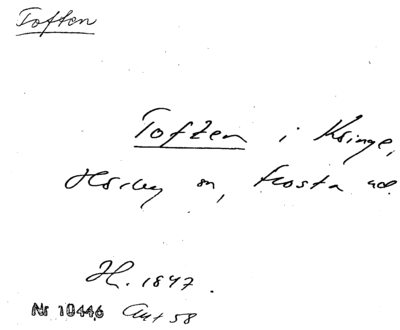 Toften
Toften i Kringe,
Hörby sn, Frosta hd.
H. 1847.
Nr 10446 Ant 58